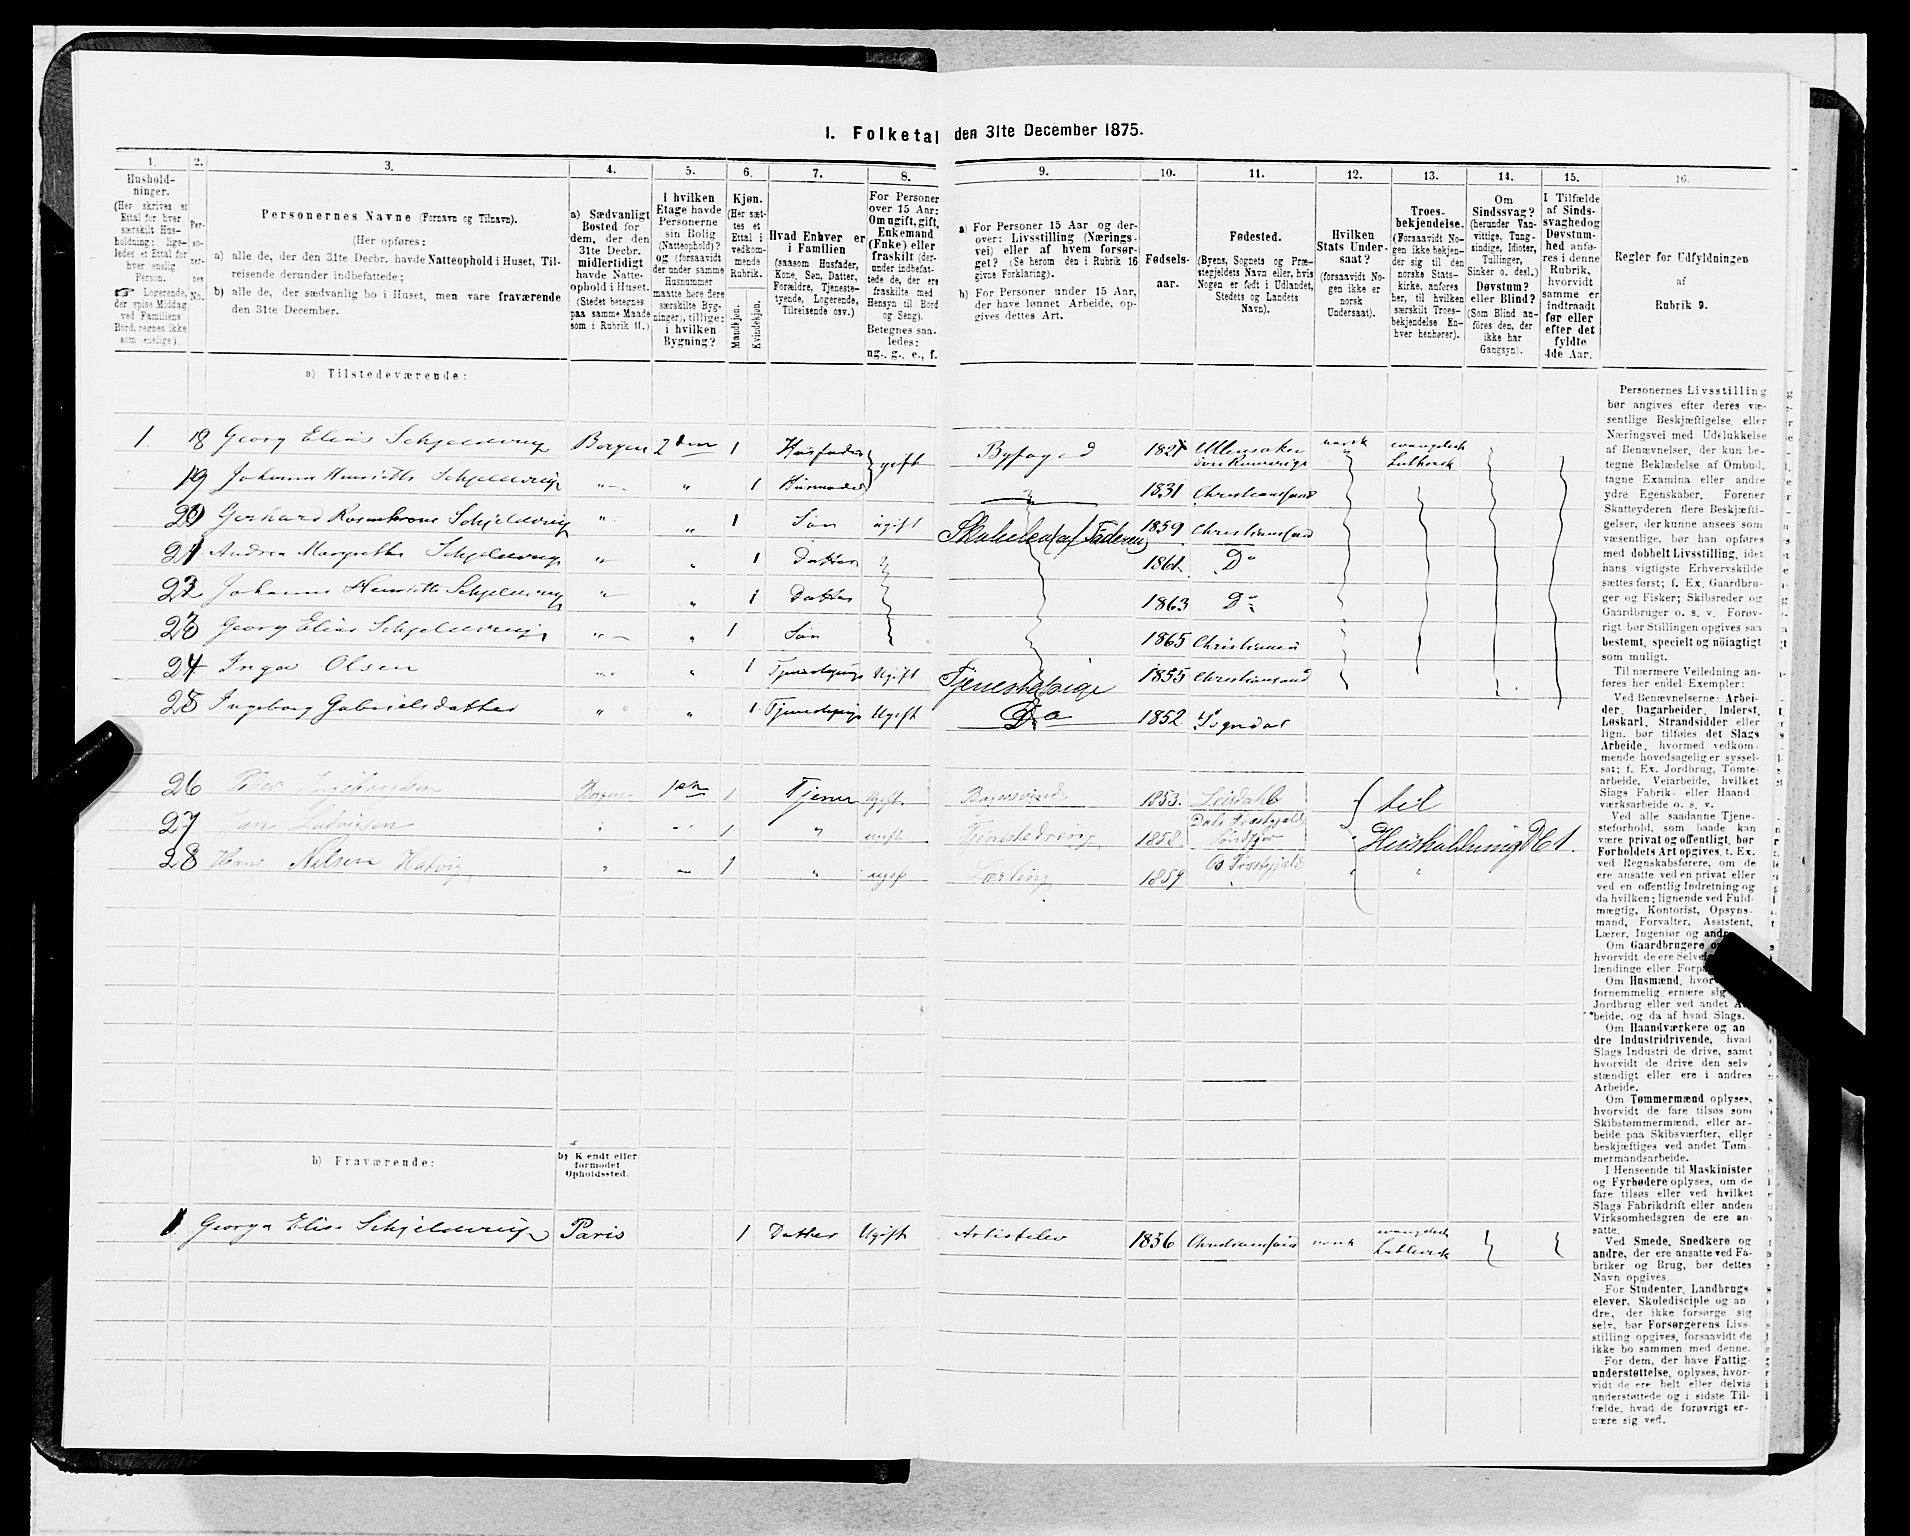 I. Folketal den 31te December 1875.
1. 2. 3. 4. 5. 6. 7. 8. 9. 10. 11. 12. 13. 14. 15. 16.
Hushold-
ninger.
(Her skrives et
Ettal for hver
særskilt Hus-
holdning; lige-
ledes et Ettal for
hver enslig
Person.
☞ Logerende,
der spise Middag
ved Familiens
Bord, regnes ikke
som enslige).
Per-
so-
ner-
nes
No.
Personernes Navne (Fornavn og Tilnavn).
(Her opføres:
a) alle de, der den 31te Decbr. havde Natteophold i Huset, Til-
reisende derunder indbefattede;
b) alle de, der sædvanlig bo i Huset, men vare fraværende
den 31te December.
a) Sædvanligt
Bosted for
dem, der den
31te Decbr.
midlertidigt
havde Natte-
ophold i Huset.
(Stedet betegnes
paa samme Maade
som i Rubrik 11.)
I hvilken
Etage havde
Personerne
sin Bolig
(Natteophold)?
og (forsaavidt
der under samme
Husnummer
maatte høre flere
særskilte Byg-
ninger), tillige:
i hvilken
Bygning?
Kjøn.
(Her sæt-
tes et
Ettal i
vedkom-
mende
Rubrik.
Mandkjøn.
Kvindekjøn.
Hvad Enhver er
i Familien
(saasom Husfader,
Kone, Søn, Datter,
Forældre, Tjeneste-
tyende, Logerende,
Tilreisende osv.)
For Personer
over 15 Aar:
Om ugift, gift,
Enkemand
(Enke) eller
fraskilt (der-
under indbefat-
tede de, der ere
fraskilte med
Hensyn til Bord
og Seng).
Betegnes saa-
ledes:
ug., g., e., f.
a) For Personer 15 Aar og der-
over: Livsstilling (Nærings-
vei) eller af hvem forsør-
get? (Se herom den i Rubrik 16
givne Forklaring).
b) For Personer under 15 Aar,
der have lønnet Arbeide, op-
gives dettes Art.
Fødsels-
aar.
Fødested.
(Byens, Sognets og Præ-
stegjeldets Navn eller, hvis
Nogen er født i Udlandet,
Stedets og Landets
Navn).
Hvilken
Stats Under-
saat?
(forsaavidt No-
gen ikke er
norsk
Undersaat).
Troes-
bekjendelse.
(Forsaavidt No-
gen ikke bekjen-
der sig til den
norske Stats-
kirke, anføres
her, til hvilken
særskilt Troes-
bekjendelse En-
hver henhører).
Om
Sindssvag?
(herunder Van-
vittige, Tung-
sindige, Idioter,
Tullinger,
Sinker o. desl.)
Døvstum?
eller Blind?
(Som Blind an-
føres den, der
ikke har
Gangsyn).
I Tilfælde
af Sinds-
svaghed og
Døvstum-
hed anfø-
res i denne
Rubrik,
hvorvidt
samme er
indtraadt
før eller
efter det
fyldte
4de Aar.
Regler for Udfyldningen
af
Rubrik 9.
a) Tilstedeværende:
1. 18 Georg Elias Schjelderup Bergen 2den 1 Husfader gift Byfoged 1821 Ullensaker norsk evangelisk Luthersk
19 Johanne Henriette Schjelderup " " 1 Husmoder 1831 Christianssand
20 Gerhard Rosenkrone Schjelderup " " 1 Søn ugift 1859 Christianssand
21 Andrea Margrethe Schjelderup " " 1 Datter 1861 Do
22 Johanne Henriette Schjelderup " " 1 Datter 1863 Do
23 Georg Elias Schjelderup " " 1 Søn 1865 Christianssand
24 Inga Olsen " 1 Tjenestepige Ugift Tjenestepige 1855 Christianssand
25 Ingeborg Gabrielsdatter " " 1 Tjenestepige Ugift Do 1852 Sogndal
26 Bergen 1ste 1 Tjener Ugift 1853.
27 Ludvigsen " 1 " ugift Tjenestedreng 1858 Dals Præstegjeld Søndfjor
28 Hans Nilsen Hatvig " 1 " ugift Lærling 1859 Os Præstegjeld
til
Husholdning No 1.
b) Fraværende:
b) Kjendt eller
formodet
Opholdssted.
1 Georga Elise Schjelderup Paris 1 Datter Ugift Artistelev 1856 Christianssand norsk evangelisk Luthersk
Personernes Livsstilling
bør angives efter deres væ-
sentlige Beskjæftigelse, eller
Næringsvei med Udelukkelse
af Benævnelser, der kun be-
tegne Beklædelse af Ombud,
tagne Examina eller andre
ydre Egenskaber. Forener
Skatteyderen flere Beskjæfti-
gelser, der kunne ansees som
væsentlige, bør han opføres
med dobbelt Livsstilling, idet
hans vigtigste Erhvervskilde
sættes først; f. Ex. Gaardbru-
ger og Fisker; Skibsreder og
Gaardbruger o. s. v. Forøv-
rigt bør Stillingen opgives saa
bestemt, specielt og nøiagtigt
som muligt.
Til nærmere Veiledning an-
føres her endel Exempler:
Ved Benævnelserne: Arbei-
der, Dagarbeider, Inderst,
Løskarl, Strandsidder eller
lign. bør tilføies det Slags
Arbeide, hvormed vedkom-
mende hovedsagelig er syssel-
sat; f. Ex. Jordbrug, Tomte-
arbeide, Veiarbeide, hvilket
Slags Fabrik- eller Haand
værksarbeide o. s. v.
Ved alle saadanne Tjene-
steforhold, som baade kan
være privat og offentligt, bør
Forholdets Art opgives, t. Ex.
ved Regnskabsførere, om de
ere ansatte ved en privat eller
ved en offentlig Indretning og
da hvilken; lignende ved Fuld-
mægtig, Kontorist, Opsyns-
mand, Forvalter, Assistent,
Lærer, Ingeniør og andre
Om Gaardbrugere
hvorvidt de ere Selv
lændinge eller Forp
Om Husmænd, hvor
fornemmelig ernære sig
Jordbrug eller ved andet Ar
beide, og da af hvad Slags.
Om Haandværkere og an
dre Industridrivende, hvad
Slags Industri de drive, samt
hvorvidt de drive den selv
stændigt eller ere i andres
Arbeide.
Om Tømmermænd oplyses,
hvorvidt de fare tilsøs som
Skibstømmermænd, eller ar-
beide paa Skibsværfter, eller
beskjæftiges ved andet Tøm-
mermandsarbeide.
I Henseende til Maskinister
og Fyrbødere oplyses, om de
fare tilsøs eller ved hvilket
Slags Fabrikdrift eller anden
Virksomhedsgren de ere an-
satte.
Ved Smede, Snedkere og
andre, der ere ansatte ved Fa-
briker og Brug, bør dettes
Navn opgives.
For Studenter, Landbrugs-
elever, Skoledisciple og an
dre, der ikke forsørge sig
selv, bør Forsørgerens Livs-
stilling opgives, forsaavidt de
ikke bo sammen med denne.
For dem, der have Fattig-
understøttelse, oplyses, hvor-
vidt de ere helt eller delvis
understøttede og i sidste Til-
fælde, hvad de forøvrigt er-
nære sig ved.